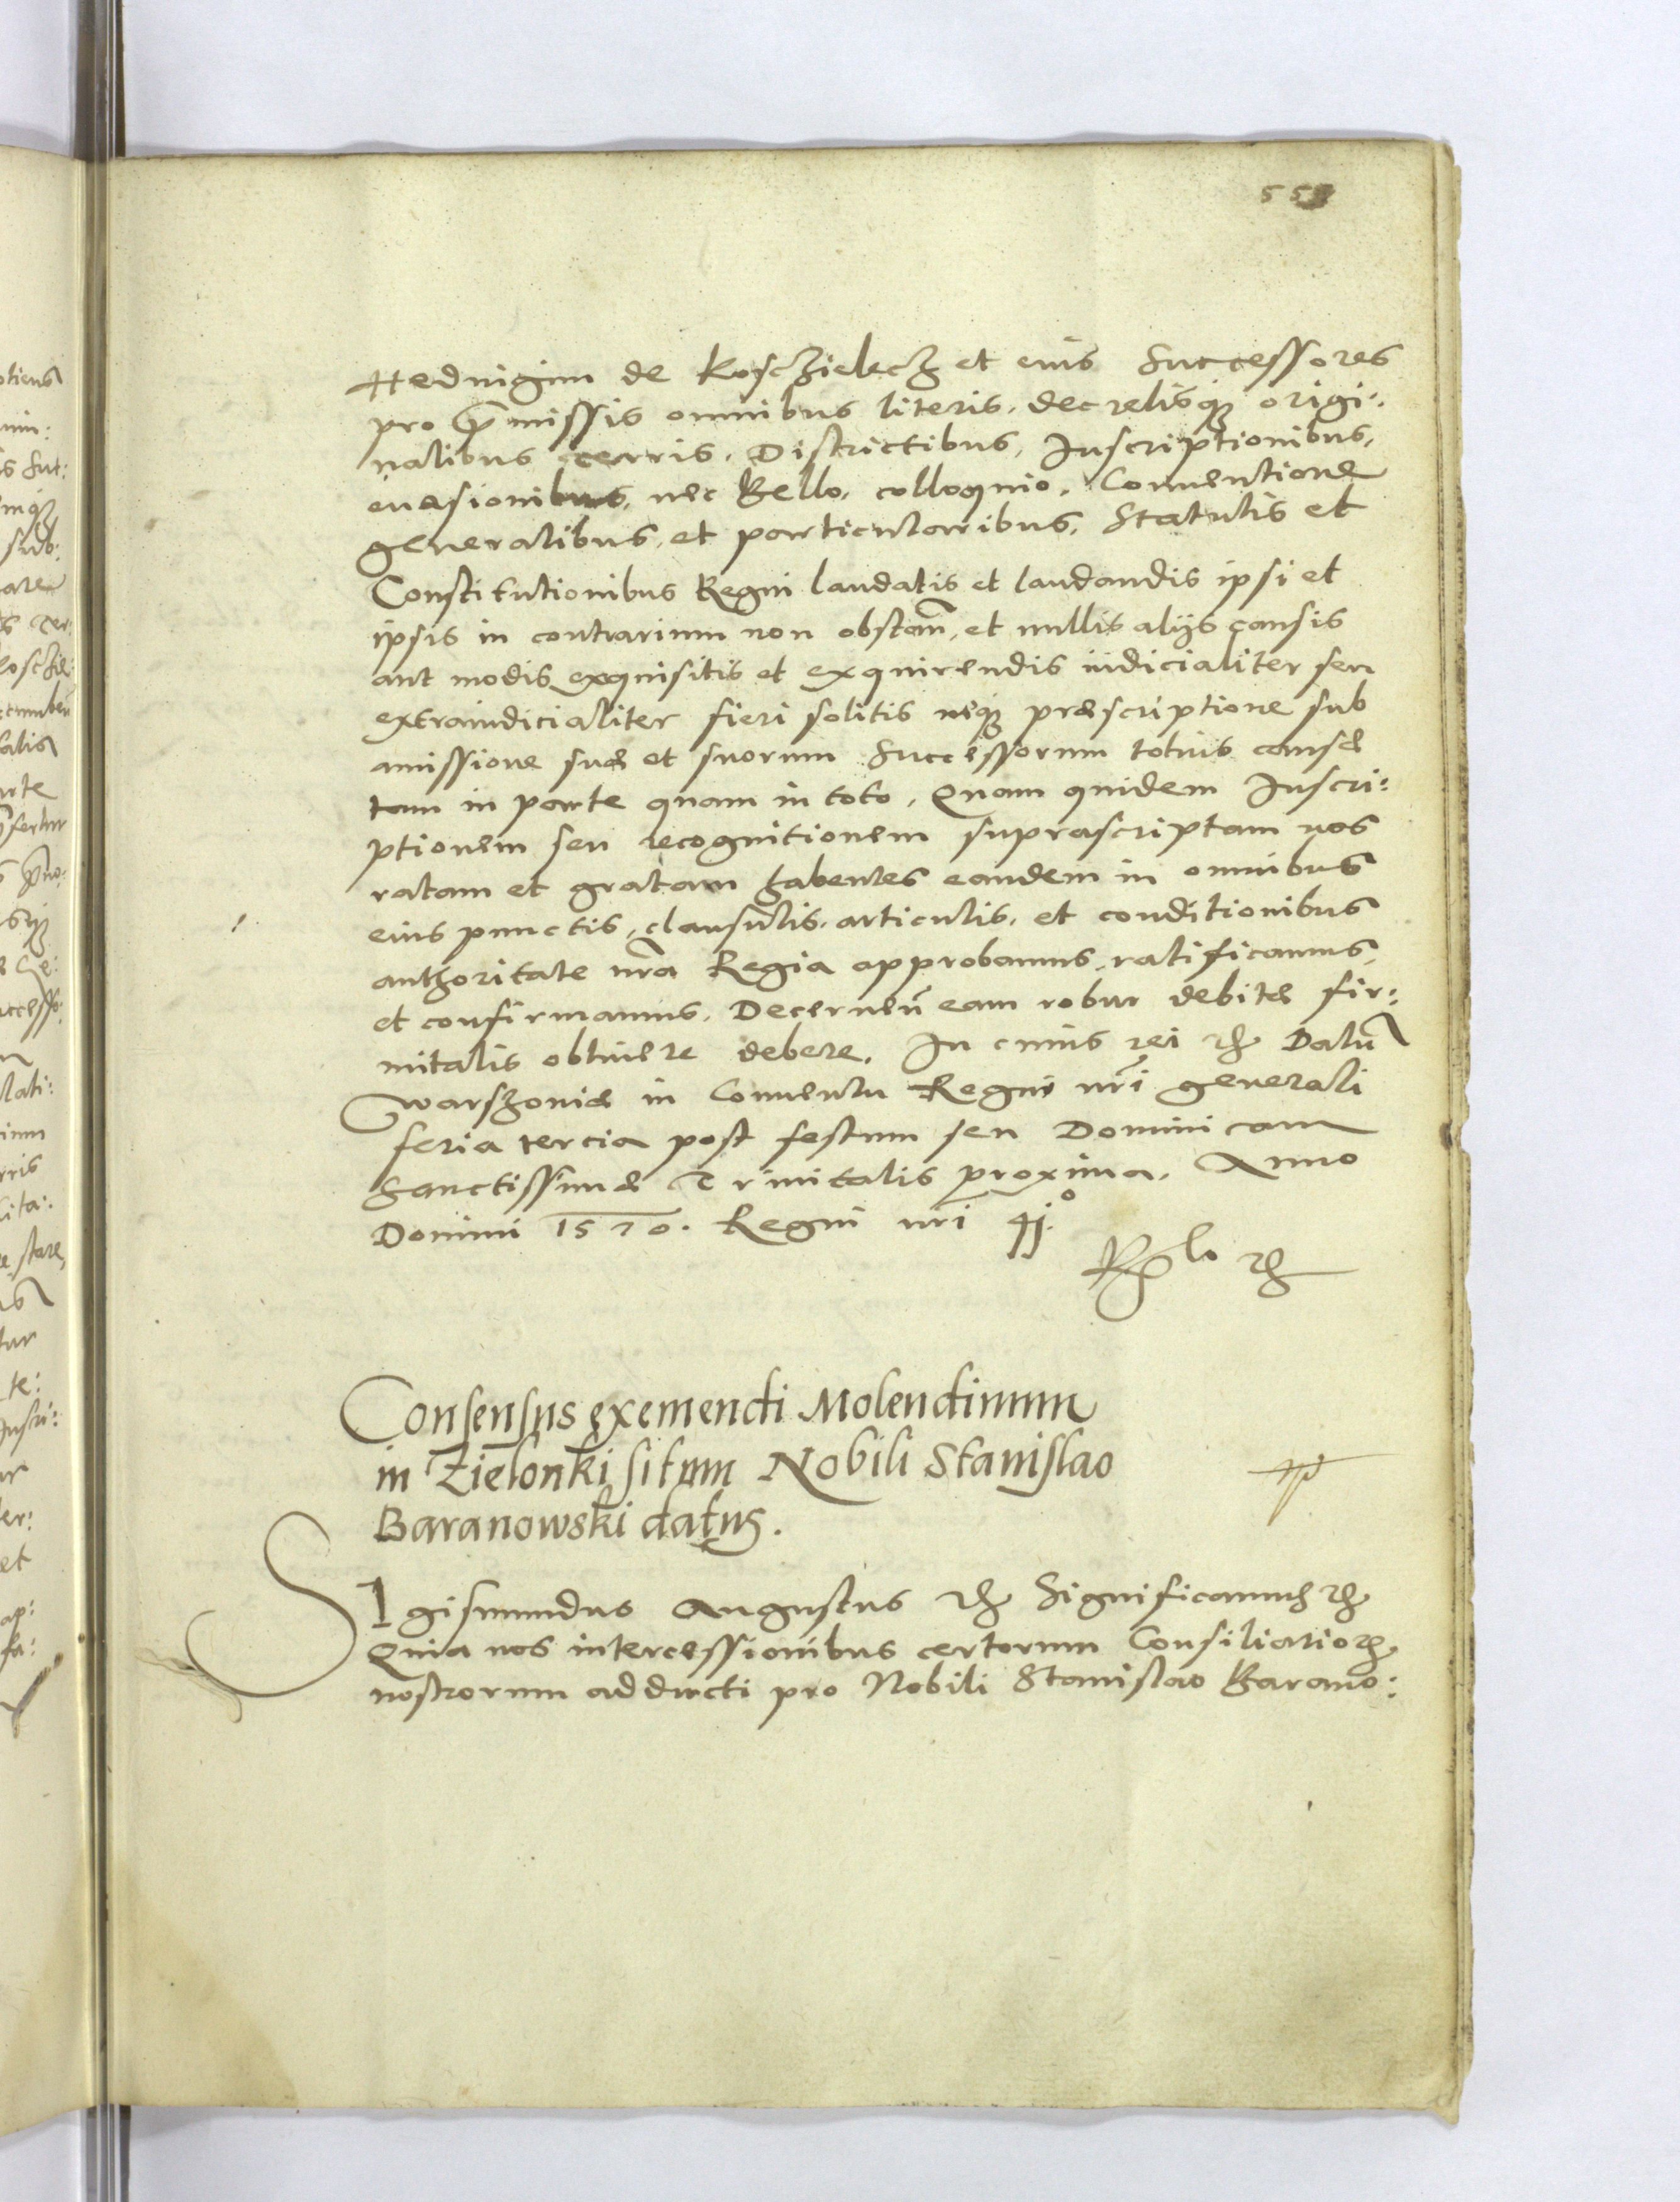 Heduigim de Kosczielecz et eius Successores
pro p̃missis omnibus literis, decretisq; origi:
nalibus terris, Districtibus, Inscriptionibus,
euasionibus, nec Bello, colloquio, Conuentione
generalibus, et particularibus, Statutis et
Constitutionibus Regni laudatis et laudandis ipsi et
ipsis in contrarium non obstan̄, et nullis alijs causis
aut modis exquisitis et exquirendis iudicialiter seu
extraiudicialiter fieri solitis neq; præscriptione sub
amissione suæ et suorum Successorum totius causæ
tam in parte quam in toto, Quam quidem Inscri:
ptionem seu recognitionem suprascriptam nos
ratam et gratam habentes eandem in omnibus
eius punctis, clausulis, articulis, et conditionibus
authoritate nr̃a Regia approbamus, ratificamus,
et confirmamus, Decernen̄ eam robur debitæ fir:
mitatis obtinere debere. In cuius rei ꝛc̃ Datū
Warszouiæ in Conuentu Regni nr̃i generali
feria tercia post festum seu Dominicam
Sanctissimæ Trinitatis proxima. Anno
Domini 1570. Regni nr̃i 41.º
ꝛc̃
Consensus exemendi Molendinum
in Zielonki situm Nobili Stanislao
Baranowski datus.
SIgismundus Augustus ꝛc̃ Significamus ꝛc̃
Quia nos intercessionibus certorum Consiliarioꝝ
nostrorum adducti pro Nobili Stanislao Barano: